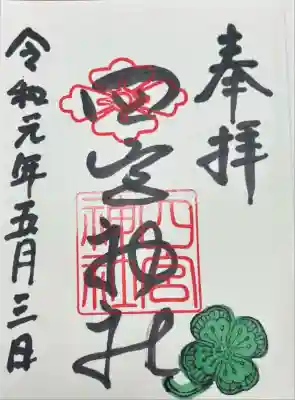 奉拝
四宮神社
四宮
神社
令和元年五月三日